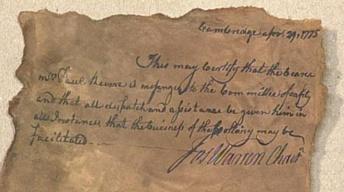 Cambridge april 29, 1775
This may Certify that the bearer
Mr Paul Revere is messenger to the Committee of Safety
and that all dispatch and assistance be given him in
all Instances that the business of the Colony may be
facilitated
Jos Warren Chair